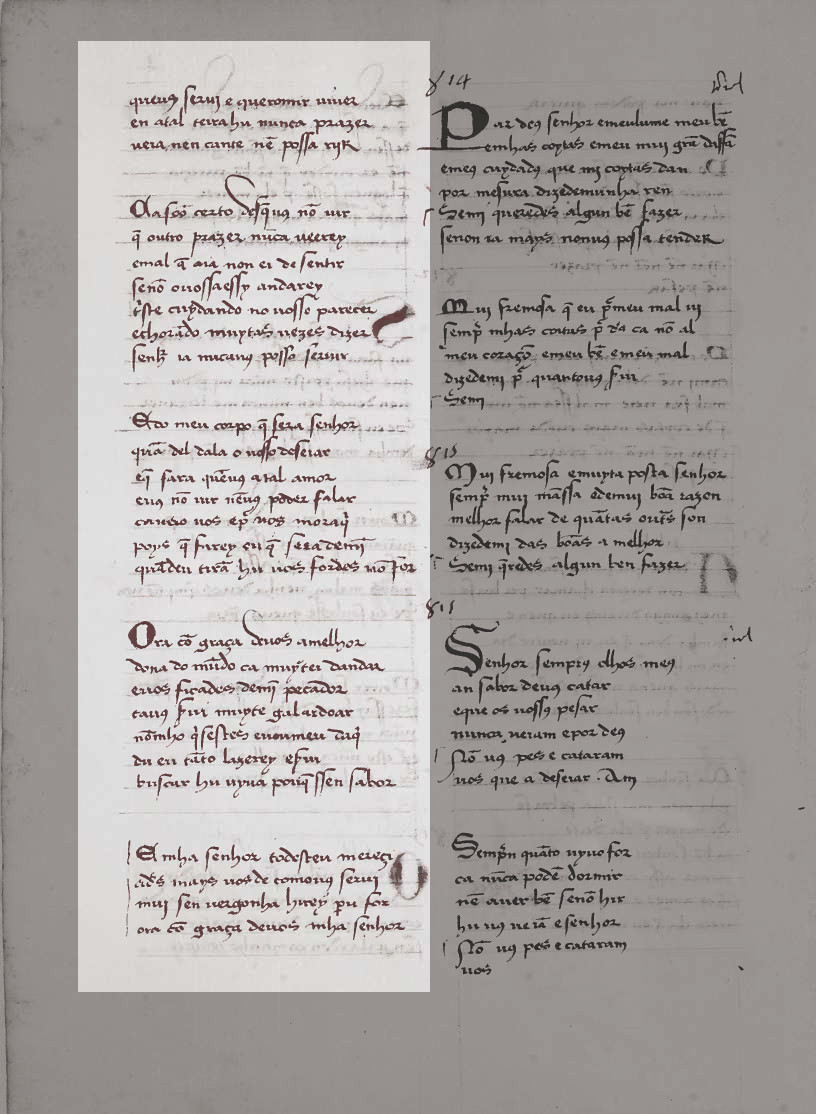 queuꝯ serui e queromir uiuer
en atal teira hu nunca prazer
ueia nen cante nē possa rijR
Aa soō certo desq̄uꝯ nō uir
q̄ outro prazer nūca ueerey
emal q̄ aia non ei de sentir
senō ouossa essy andarey
tⁱste cuydando no uosso pareçer
echorādo muytas uezes dizer
senhr̄ ia nūcauꝯ posso seruir
Edo meu corpo q̄ sera senhor
quā del dala o uosso deseiar
eq̄ fara quēuꝯ a tal amor
euꝯ nō uir nēuꝯ poder falar
poys q̄ farey eu q̄ sera demī
quādeu tirā hu uos fordes nō for
Ora cō graça deuos amelhor
dona do mūdo ca muytei dandar
euos ficades demī pecador
ca uꝯ fui muyte galardoar
du eu tāto lazerey e fui
buscar hu uyua pouq̄ ssen sabor
A mha senhor todesteu mereçi
ads̄ mays uos de comouꝯ serui
mui sen uergonha hirey pru for
ora cō graça deuos mha senhor
814
Par deꝯ senhor emeulume meu bē
emhas coytas emeu mui grā
emeꝯ cuydadꝯ que mi coytas dan
por mesura dizedemunha ren
Semi queredes algun bē fazer
senon ia mays nonuꝯ possa tendeR
Mui fremosa q̄ eu p̄ meu mal ui
semp̄ mhas coitas p̄ ds̄ ca nō al
meu coraçō emeu bē e meu mal
dizedemi p̄ quantouꝯ fui
Semi
815
Mui fremosa emuyta posta senhor
semp̄ mui māssa edemui boā razon
melhor falar de quātas outs̄ son
dizedemi das boās a melhor
Semi q̄redes algun ben fazer
Senhor sempꝯ olhos meꝯ
an sabor deuꝯ catar
eque os uossꝯ pesar
nunca ueiam e por deꝯ
Nō uꝯ pes e cataram
uos que a deseiar. Am
Semp̄n quāto uyuo for
ca nūca podē dormir
nē auer bē senō hir
hu uꝯ ueiā e senhor
Nō uꝯ pes e cataram
uos